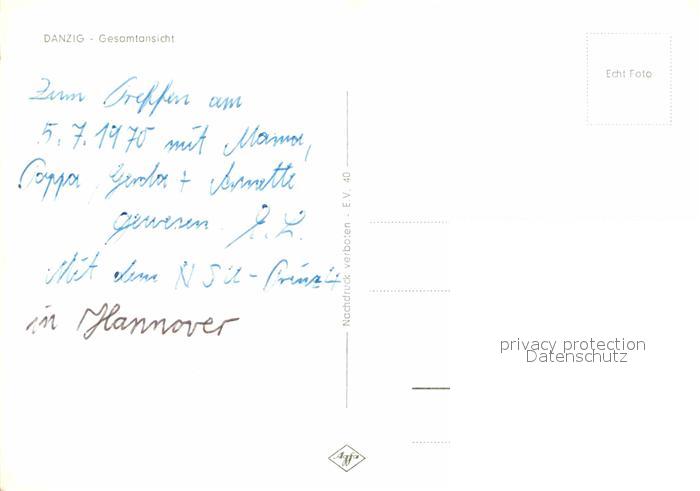 DANZIG - Gesamtansicht
Echt Foto
Zum Treffen am
5.7.1970 mit Mama,
Pappa, Gerda + Annette
gewesen. E. L.
Mit dem NSU-Prinz 4
in Hannover
Nachdruck verboten - E.V. 40
privacy protection
Datenschutz
Agfa